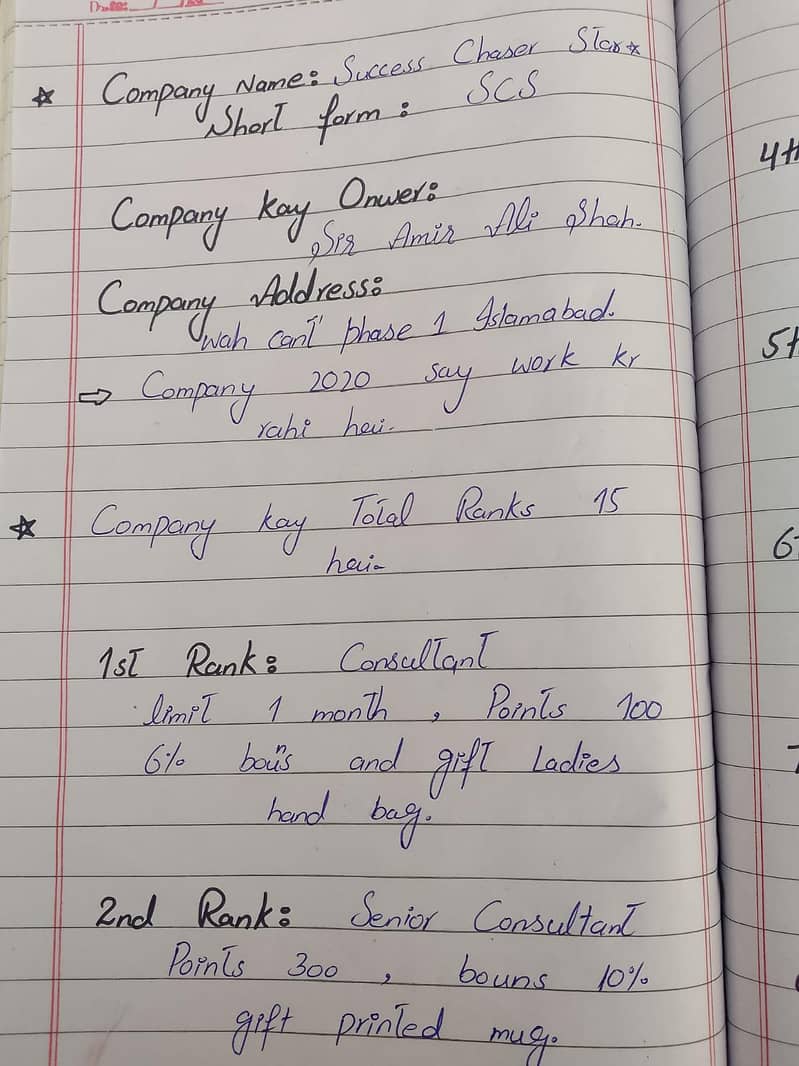 Date:
Company Name: Success Chaser Star
Short form: SCS
Company kay Onwer:
Sir Amir Ali Shah.
Company Address:
wah cant phase 1 Islamabad.
⇒ Company 2020 say work kr
rahi hai.
Company kay Total Ranks 15
hai-
1st Rank: Consultant
limit 1 month, Points 100
6% bouns and gift Ladies
hand bag.
2nd Rank: Senior Consultant
Points 300, bouns 10%
gift printed mug.
4th
5t
6